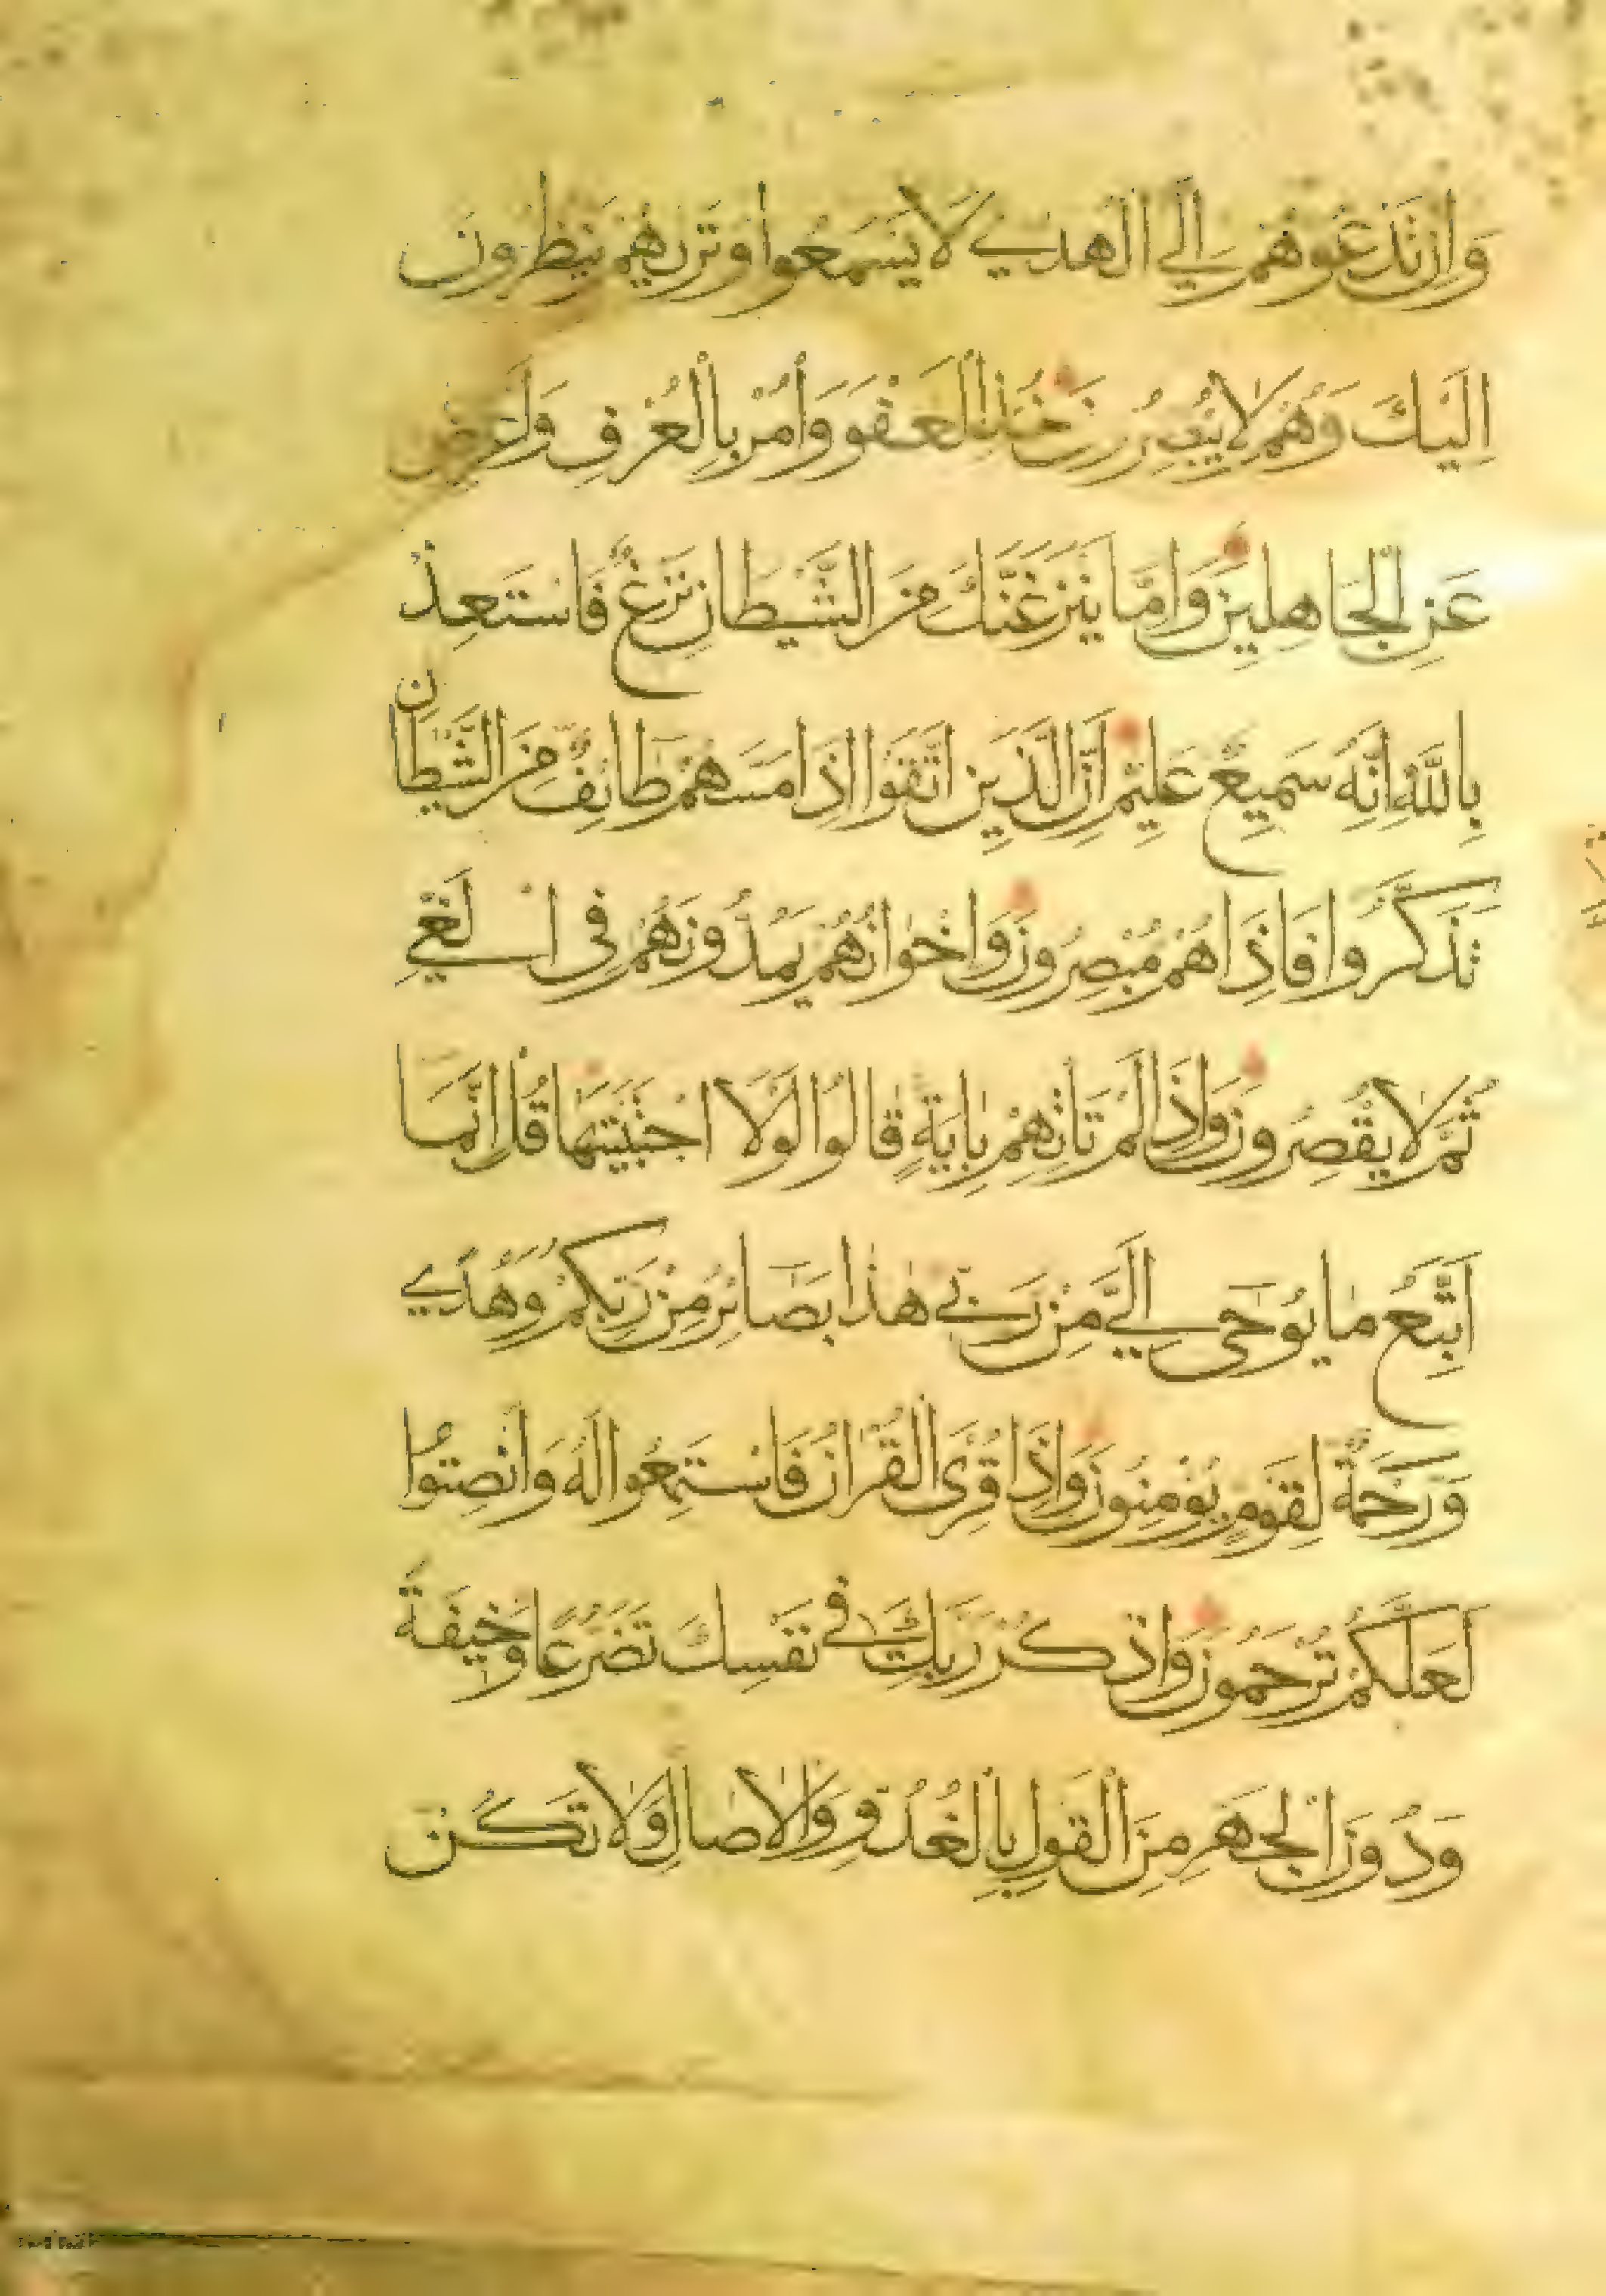 وَاِنْ تَدْعُوهُمْ اِلَى الْهُدٰى لَا يَسْمَعُوا وَتَرٰىهُمْ يَنْظُرُونَ
اِلَيْكَ وَهُمْ لَا يُبْصِرُونَ خُذِ الْعَفْوَ وَاْمُرْ بِالْعُرْفِ وَاَعْرِضْ
عَنِ الْجَاهِلِينَ وَاِمَّا يَنْزَغَنَّكَ مِنَ الشَّيْطَانِ نَزْغٌ فَاسْتَعِذْ
بِاللّٰهِ اِنَّهُ سَمِيعٌ عَلِيمٌ اِنَّ الَّذِينَ اتَّقَوْا اِذَا مَسَّهُمْ طَائِفٌ مِنَ الشَّيْطَانِ
تَذَكَّرُوا فَاِذَا هُمْ مُبْصِرُونَ وَاِخْوَانُهُمْ يَمُدُّونَهُمْ فِى الْغَيِّ
ثُمَّ لَا يُقْصِرُونَ وَاِذَا لَمْ تَاْتِهِمْ بِاٰيَةٍ قَالُوا لَوْلَا اجْتَبَيْتَهَا قُلْ اِنَّمَا
اَتَّبِعُ مَا يُوحٰى اِلَيَّ مِنْ رَبِّى هٰذَا بَصَائِرُ مِنْ رَبِّكُمْ وَهُدًى
وَرَحْمَةٌ لِقَوْمٍ يُؤْمِنُونَ وَاِذَا قُرِئَ الْقُرْاٰنُ فَاسْتَمِعُوا لَهُ وَاَنْصِتُوا
لَعَلَّكُمْ تُرْحَمُونَ وَاذْكُرْ رَبَّكَ فِى نَفْسِكَ تَضَرُّعًا وَخِيفَةً
وَدُونَ الْجَهْرِ مِنَ الْقَوْلِ بِالْغُدُوِّ وَالْاٰصَالِ وَلَا تَكُنْ